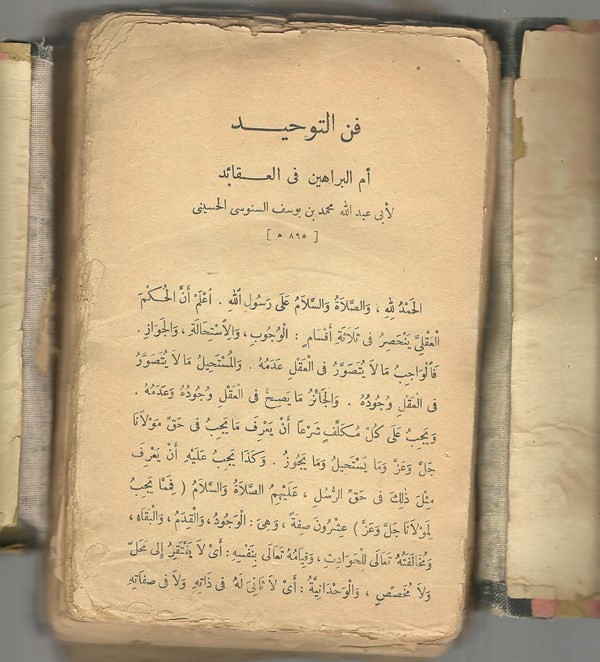 فن التوحيـــد
أم البراهين فى العـقائد
لأبى عبد الله محمد بن يوسف السنوسى الحسينى
[ ٨٩٥ ه ]
الحَمْدُ لِلهِ ، وَالصَّلاَةُ وَالسَّلاَمُ عَلَى رَسُولِ اللهِ . اُعْلَمْ أَنَّ الْحُكْمَ
الْعَقْلِىَّ يَنْحَصِرُ فى ثَلاَثَةِ أَقْسَامٍ : الْوُجُوبِ ، وَالِاُسْتِحَالَةِ ، وَالْجَوَازِ .
فَالْوَاجِبُ مَا لاَ يُتَصَوَّرُ فى الْعَقْلِ عَدَمُهُ . وَالْمُسْتَحِيلُ مَا لاَ يُتَصَوَّرُ
فى الْعَقْلِ وُجُودُهُ . وَالْجَائزُ مَا يَصِحُّ فى الْعَقْلِ وُجُودُهُ وَعَدَمُهُ .
وَيَجِبُ عَلَى كُلِّ مُكَلَّفٍ شَرْعًا أَنْ يَعْرِفَ مَا يَجِبُ فى حَقِّ مَوْلاَنَا
جَلَّ وَعَزَّ وَمَا يَسْتَحِيلُ وَمَا يَجُوزُ . وَكَذَا يَجِبُ عَلَيْهِ أَنْ يَعْرِفَ
مِثْلَ ذٰلِكَ فى حَقِّ الرُّسُلِ ، عَلَيْهِمُ الصَّلاَةُ وَالسَّلاَمُ ( فَمِمَّا يَجِبُ
لِمَوْلاَنَا جَلَّ وَعَزَّ ) عِشْرُونَ صِفَةً ، وَهِىَ : الْوُجُودُ ، وَالْقِدَمُ ، وَالْبَقَاءُ ،
وَمُخَالَفَتُهُ تَعَالَى لِلْحَوَادِثِ ، وَقِيَامُهُ تَعَالَى بِنَفْسِهِ : أَىْ لاَ يَفْتَقِرُ إِلَى مَحَلٍّ
وَلاَ مُخَصِّصٍ ، وَالْوَحْدَانِيَّةُ : أَىْ لاَ ثَانِىَ لَهُ فى ذَاتِهِ وَلاَ فى صِفَاتِهِ